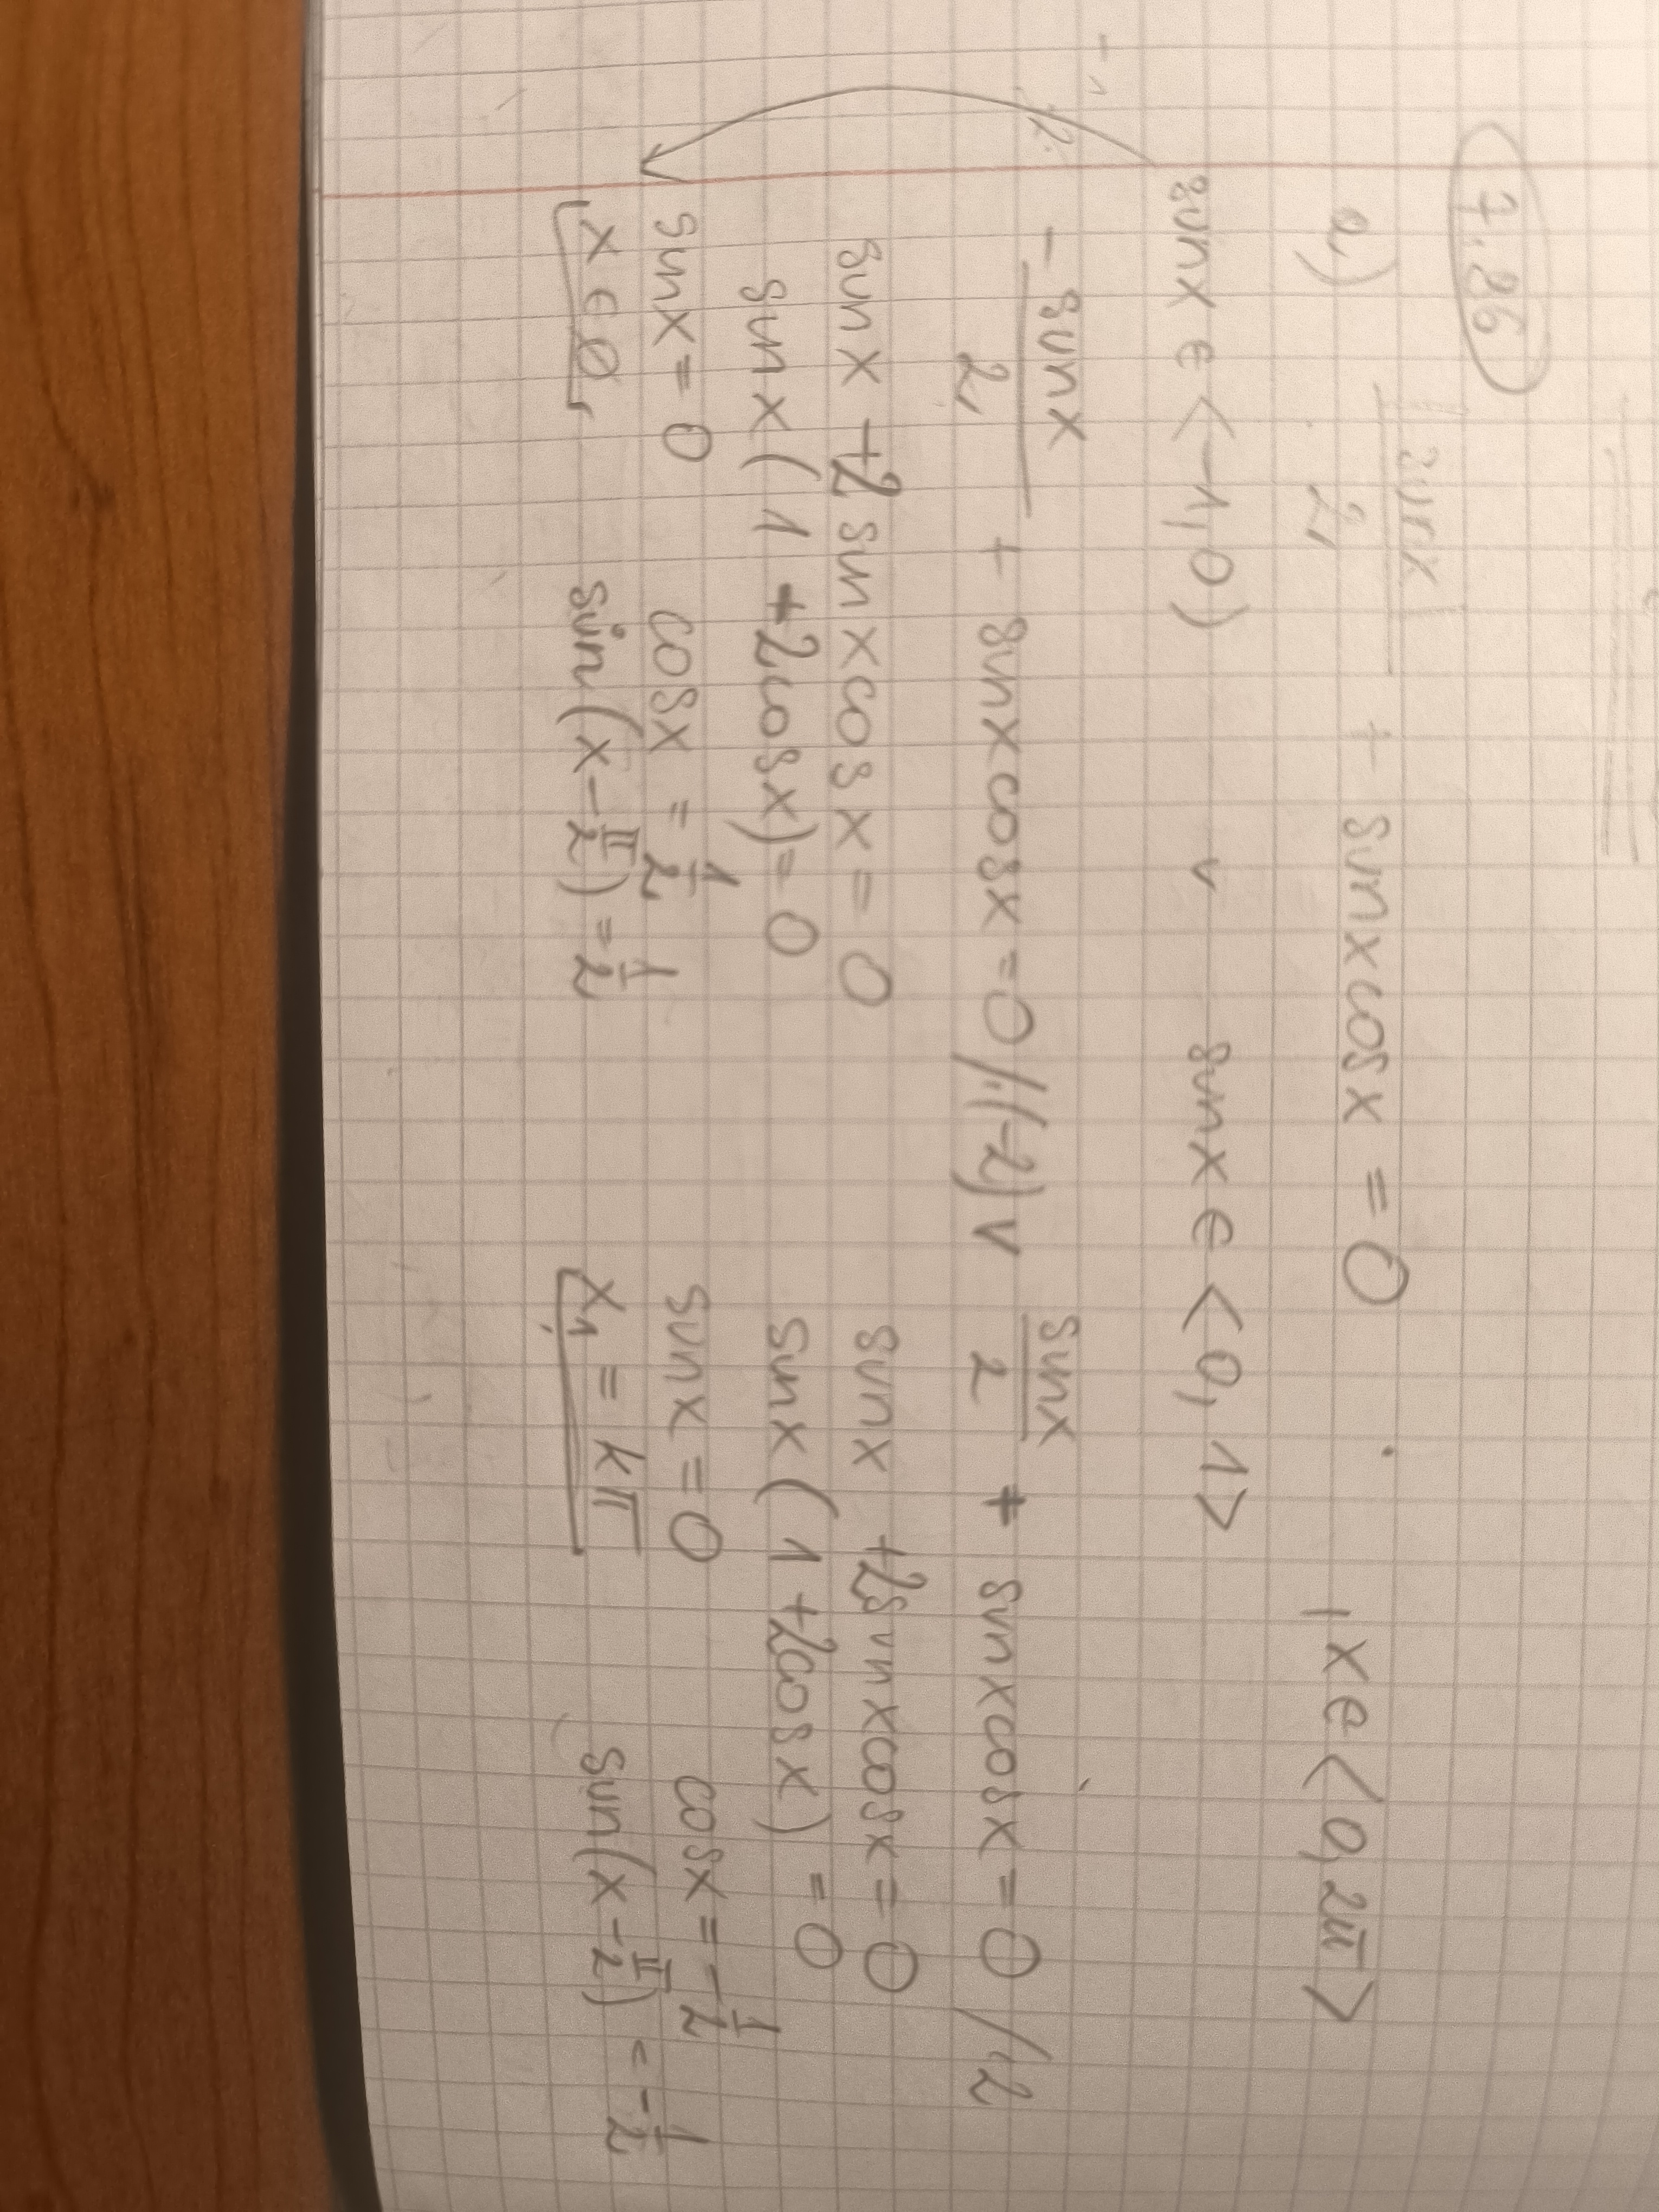 7.86
a) |sinx|/2 + sinxcosx = 0 , x∈<0, 2π>
sinx ∈ <-1, 0) v sinx ∈ <0, 1>
- sinx/2 + sinxcosx = 0 /·(-2) v sinx/2 + sinxcosx = 0 /·2
sinx +2 sinxcosx = 0 sinx +2sinxcosx = 0
sinx(1 +2cosx) = 0 sinx(1 +2cosx) = 0
sinx = 0 cosx = 1/2 sinx = 0 cosx = -1/2
x ∈ ∅ sin(x - π/2) = 1/2 x₁ = kπ sin(x - π/2) = -1/2